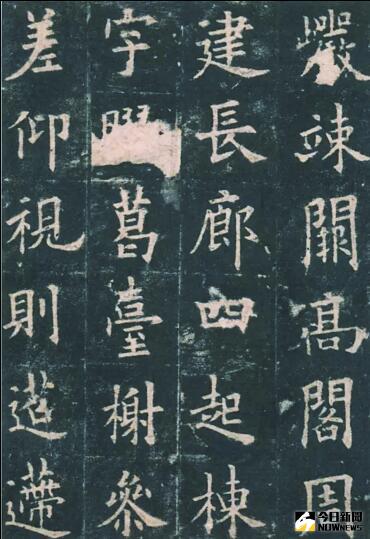 巖竦闕高閣周
建長廊四起棟
宇葛臺榭參
差仰視則迢遰
今日新聞
NOWnews